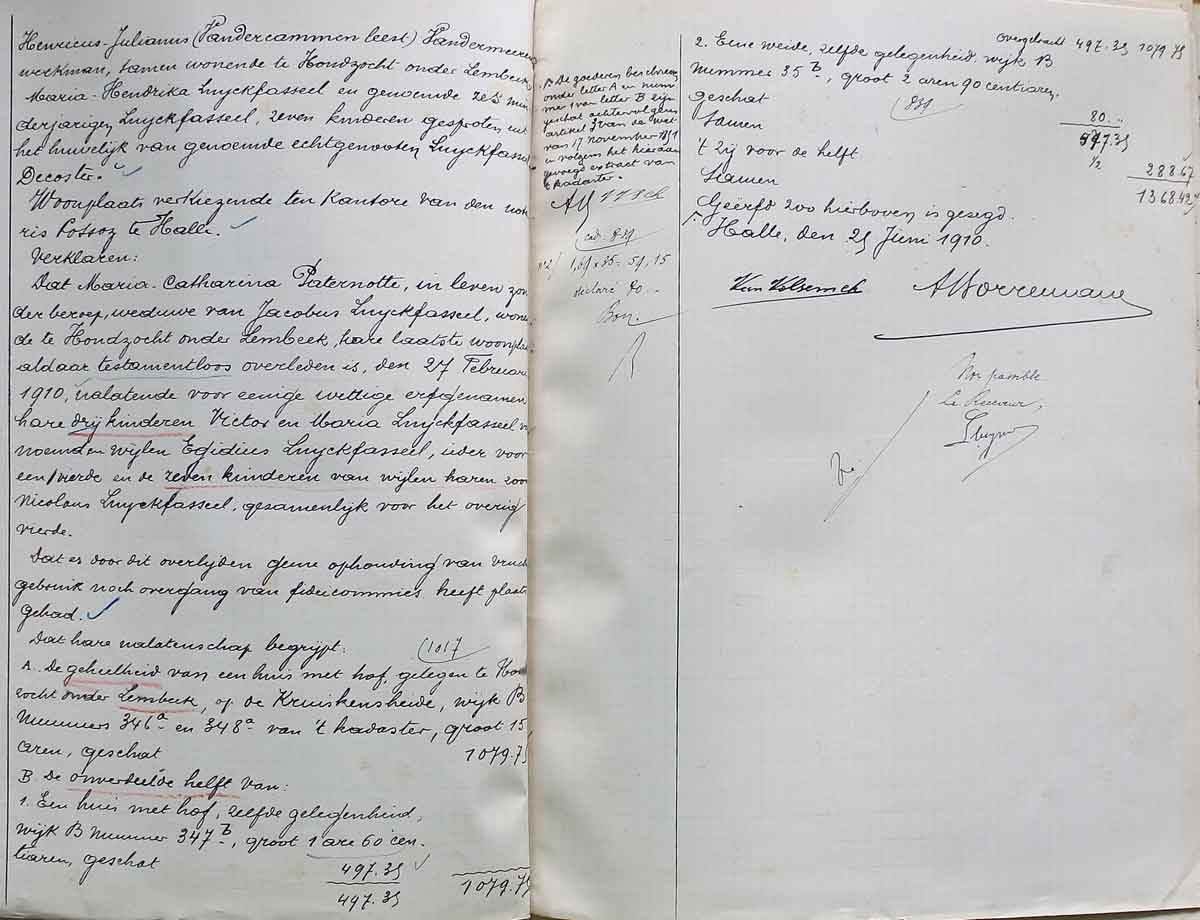 Henricus-Julianus (Vandercammen leest) Vandermeeren
werkman, samen wonende te Hondzocht onder Lembeek
Maria-Hendrika Luyckfasseel en genoemde zes min
derjarigen Luyckfasseel, zeven kinderen gesproten uit
het huwelijk van genoemde echtgenooten Luyckfasseel
Decoster.
Woonplaats verkiezende ten kantore van den nota
ris Possoz te Halle.
Verklaren:
Dat Maria-Catharina Paternotte, in leven zon
der beroep, weduwe van Jacobus Luyckfasseel, wonen
de te Hondzocht onder Lembeek, hare laatste woonplaats
aldaar testamentloos overleden is, den 27 Februari
1910, nalatende voor eenige wettige erfgenamen
hare drij kinderen Victor en Maria Luyckfasseel
noemd en wijlen Egidius Luyckfasseel, ieder voor
een vierde en de zeven kinderen van wijlen haren zoon
Nicolaus Luyckfasseel, gesamenlijk voor het overig
vierde.
Dat er door dit overlijden geene ophouding van vrucht
gebruik noch overgang van fideicommies heeft plaats
gehad.
Dat hare nalatenschap begrijpt:
1017
A. De geheelheid van een huis met hof, gelegen te Hond
zocht onder Lembeek, op de Kruiskensheide, wijk B
Nummers 346a en 348a van 't kadaster, groot 15
aren, geschat 1079.75
B De onverdeelde helft van:
1. Een huis met hof, zelfde gelegenheid,
wijk B Nummer 347b, groot 1 are 60 cen-
tiaren, geschat
497.35
497.35 1079.75
A De goederen beschreven
onder letter A en num
mer 1 van letter B zijn
geschat achtervolgens
artikel 3 van de wet
van 17 november 1851
en volgens het hieraan
gevoegd extract van
't kadaster.
cad: 839
n°2/ 1,69 x 35 = 59,15
declaré 80..
Bon.
overgebracht 497.35 1079.75
2. Eene weide, zelfde gelegenheid wijk B
Nummer 35b, groot 2 aren 90 centiaren,
geschat
839
80...
Samen 577.35
't zij voor de helft 1/2 288.67
Samen 1368.42
Geerft zoo hierboven is gezegd.
Halle, den 25 Juni 1910.
Van Volsem
Le Receveur,